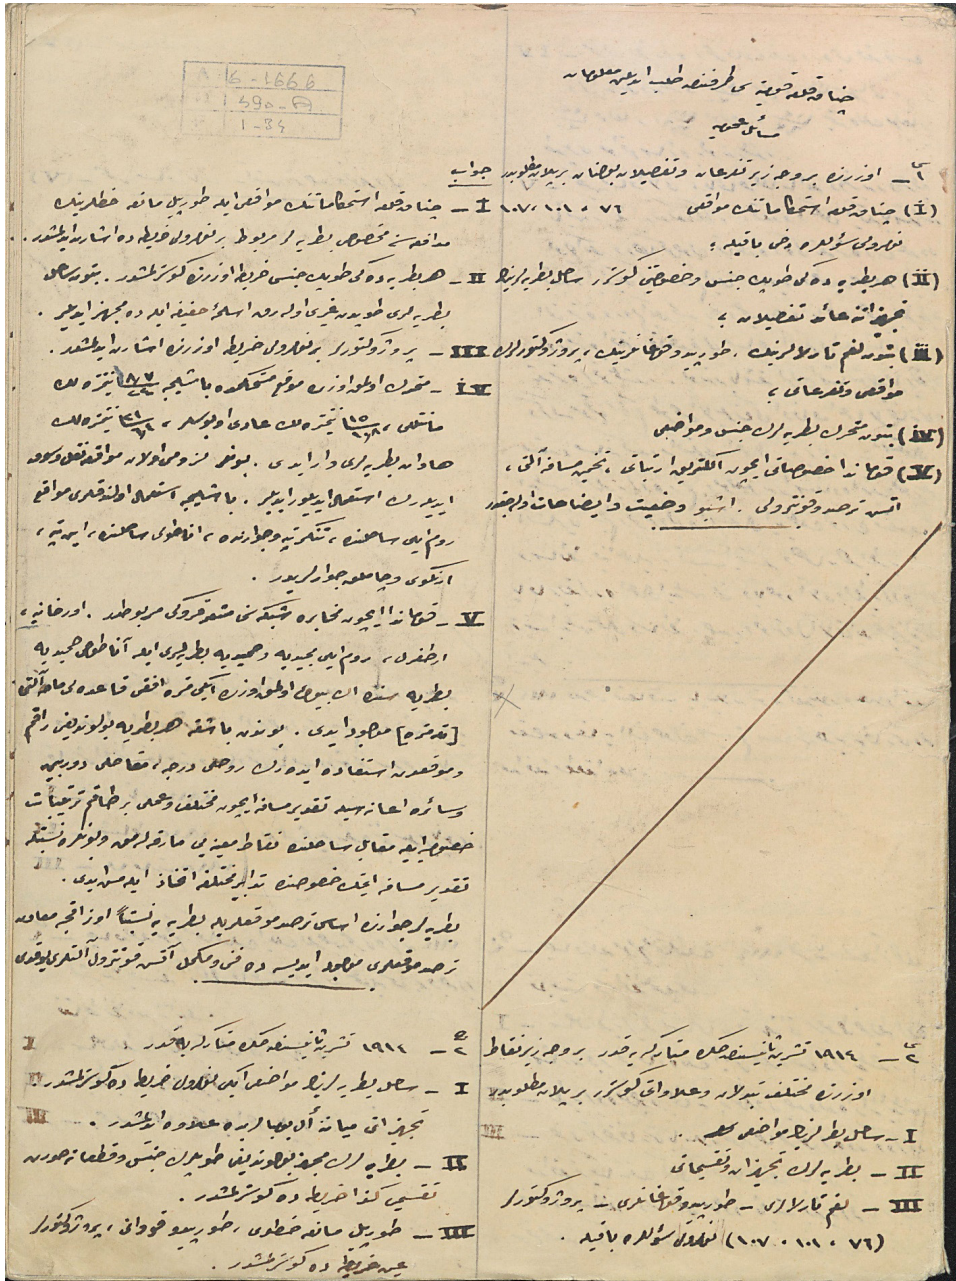 چناق قلعه قومیته سی طرفندن طلب ایدیلن معلومات
مسائل عمومیه
س ١ ـ اوزرنده بروجه زیر تفرعات و تفصیلات بولنان بر پلان مطلوبدر
(i) چناق قلعه استحکاماتنك مواقعی ٧٦ ، ١٠١ ، ١٠٧
نومرولی سؤللره دخی باقیله ؛
(II) هر بطریه ده کی طوپك جنس و خصوصیتنی کوسترر ساحل بطریه لرینك
تجهیزاتنه عائد تفصیلات ؛
(iii) بتون لغم تارلالرینك ، طورپیدو قوغانلرینك ، پروژوکتورلرك
مواقعی و تفرعاتی ؛
(iv) بتون متحرك بطریه لرك جنس و مواضعی
(V) قوماندا خصوصاتی ایچون الکتریق ارتباطی ، تخمین مسافه آلتی ،
آتش ترصد و قونترولی . اشبو وضعیت و ایضاحات اوله جقدر
جواب
I ـ چناق قلعه استحکاماتنك مواقعی ایله طورپیل مانعه خطلرینك
مدافعه سنه مخصوص بطریه لر مربوط بر نومرولی خریطه ده اشارت ایدلمشدر .
II ـ هر بطریه ده کی طوپك جنسی خریطه اوزرنده کوسترلمشدر . بتون ساحل
بطریه لری طوپدن غیری اوله رق اسلحهٔ خفیفه ایله ده مجهز ایدیلر .
III ـ پروژوکتورلر بر نومرولی خریطه اوزرنده اشارت ایدلمشدر .
iV ـ متحرك اولمق اوزره موقع مستحکمده باشلیجه ٨،٧ سانتیمتره لك
مانتللی ، ١٥ سانتیمتره لك عادی اوبوسلر ، ٢١ سانتیمتره لك
هاوان بطریه لری وار ایدی . بونلر لزومی اولان مواقعه نقل و سوق
ایدیله رك استعمال ایدیلیور ایدیلر . باشلیجه استعمال اولندقلری مواقع
روم ایلی ساحلنده ، تنکر تپه و جوارنده ، اناطولی ساحلنده ، این تپه ،
ارنکوی و چاملق جوارلریدر .
V ـ قوماندا ایچون مخابره شبکه سی مستحکم موقعه مربوطدر . اورخانیه ،
ارطغرل ، روم ایلی مجیدیه و حمیدیه بطریه لری ایله آناطولی حمیدیه
بطریه سنده اك بیوكی اولمق اوزره ایکی متره افقی قاعده لی مسافه آلتی
[تله متره] موجود ایدی . بوندن باشقه هر بطریه بولوندیغی راقم
و موقعدن استفاده ایده رك روحلی درجه ، مقاصلی دوربین
و سائره اعانه سیله تقدیر مسافه ایچون مختلف و عملی بر طاقم ترتیبات
خصوصیله مقابل ساحلده نقاط معینه یی مارقه لامق و بونلره نسبتله
تقدیر مسافه ایتمك خصوصنده تدابیر مختلفه اتخاذ ایله مش ایدی .
بطریه لر جوارنده اساسی ترصد موقعلریله بطریه یه نسبتاً اوزاقجه معاون
ترصد موقعلری موجود ایدیسه ده فنی و مکمل آتش قونترول آلتلری یوقدی
س ٢ ـ ١٩١٤ تشرین ثانیسندن متارکه یه قدر بروجه زیر نقاط
اوزرنده مختلف تبدلات و علاواتی کوسترر بر پلان مطلوبدر
I ـ ساحل بطریه لرینك مواضعی
II ـ بطریه لرك تجهیزات و تقسیماتی
III ـ لغم تارلالری ـ طورپیدو قوغانلری ـ پروژوکتورلر
(٧٦ ، ١٠١ ، ١٠٧) نومرولی سؤللره باقیله .
ج ٢ ـ ١٩١٤ تشرین ثانیسندن متارکه یه قدر
I ـ ساحل بطریه لرینك مواضعی ایکی نومرولی خریطه ده کوسترلمشدر .
تجهیزاتی میاننه آل بومبالری ده علاوه ایدلمشدر .
II ـ بطریه لرك مجهز بولوندیغی طوپلرك جنسی و قطعاته صورت
تقسیمی کذا خریطه ده کوسترلمشدر .
III ـ طورپیل مانعه خطوطی ، طورپیدو قووانی ، پروژوکتورلر
عین خریطه ده کوسترلمشدر .